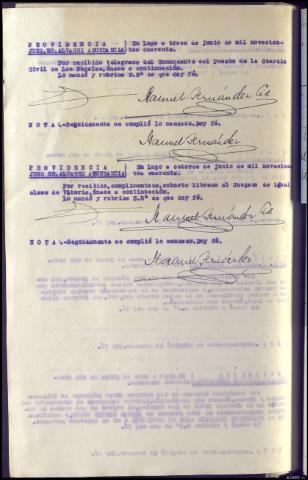 PROVIDENCIA ) En Lugo a trece de junio de mil novecien-
JUEZ SR. ALVAREZ ABUNDANCIA) tos cuarenta.
Por recibido telegrama del Comandante del Puesto de la Guardia
Civil de Los Nogales, únase a continuación.
Lo mandó y rubrica S.Sª de que doy fé.
Manuel Fernández
NOTA.-Seguidamente se cumplió lo mandado.Doy fé.
Manuel Fernández
PROVIDENCIA ) En Lugo a catorce de junio de mil novecien
JUEZ SR.ALVAREZ ABUNDANCIA) tos cuarenta.
Por recibido,cumplimentado, exhorto librado al Juzgado de igual
clase de Vitoria,únase a continuación.
Lo mandó y rubrica S.Sª de que doy fé.
Manuel Fernández
NOTA.-Seguidamente se cumplió lo mandado.Doy fé.
Manuel Fernández